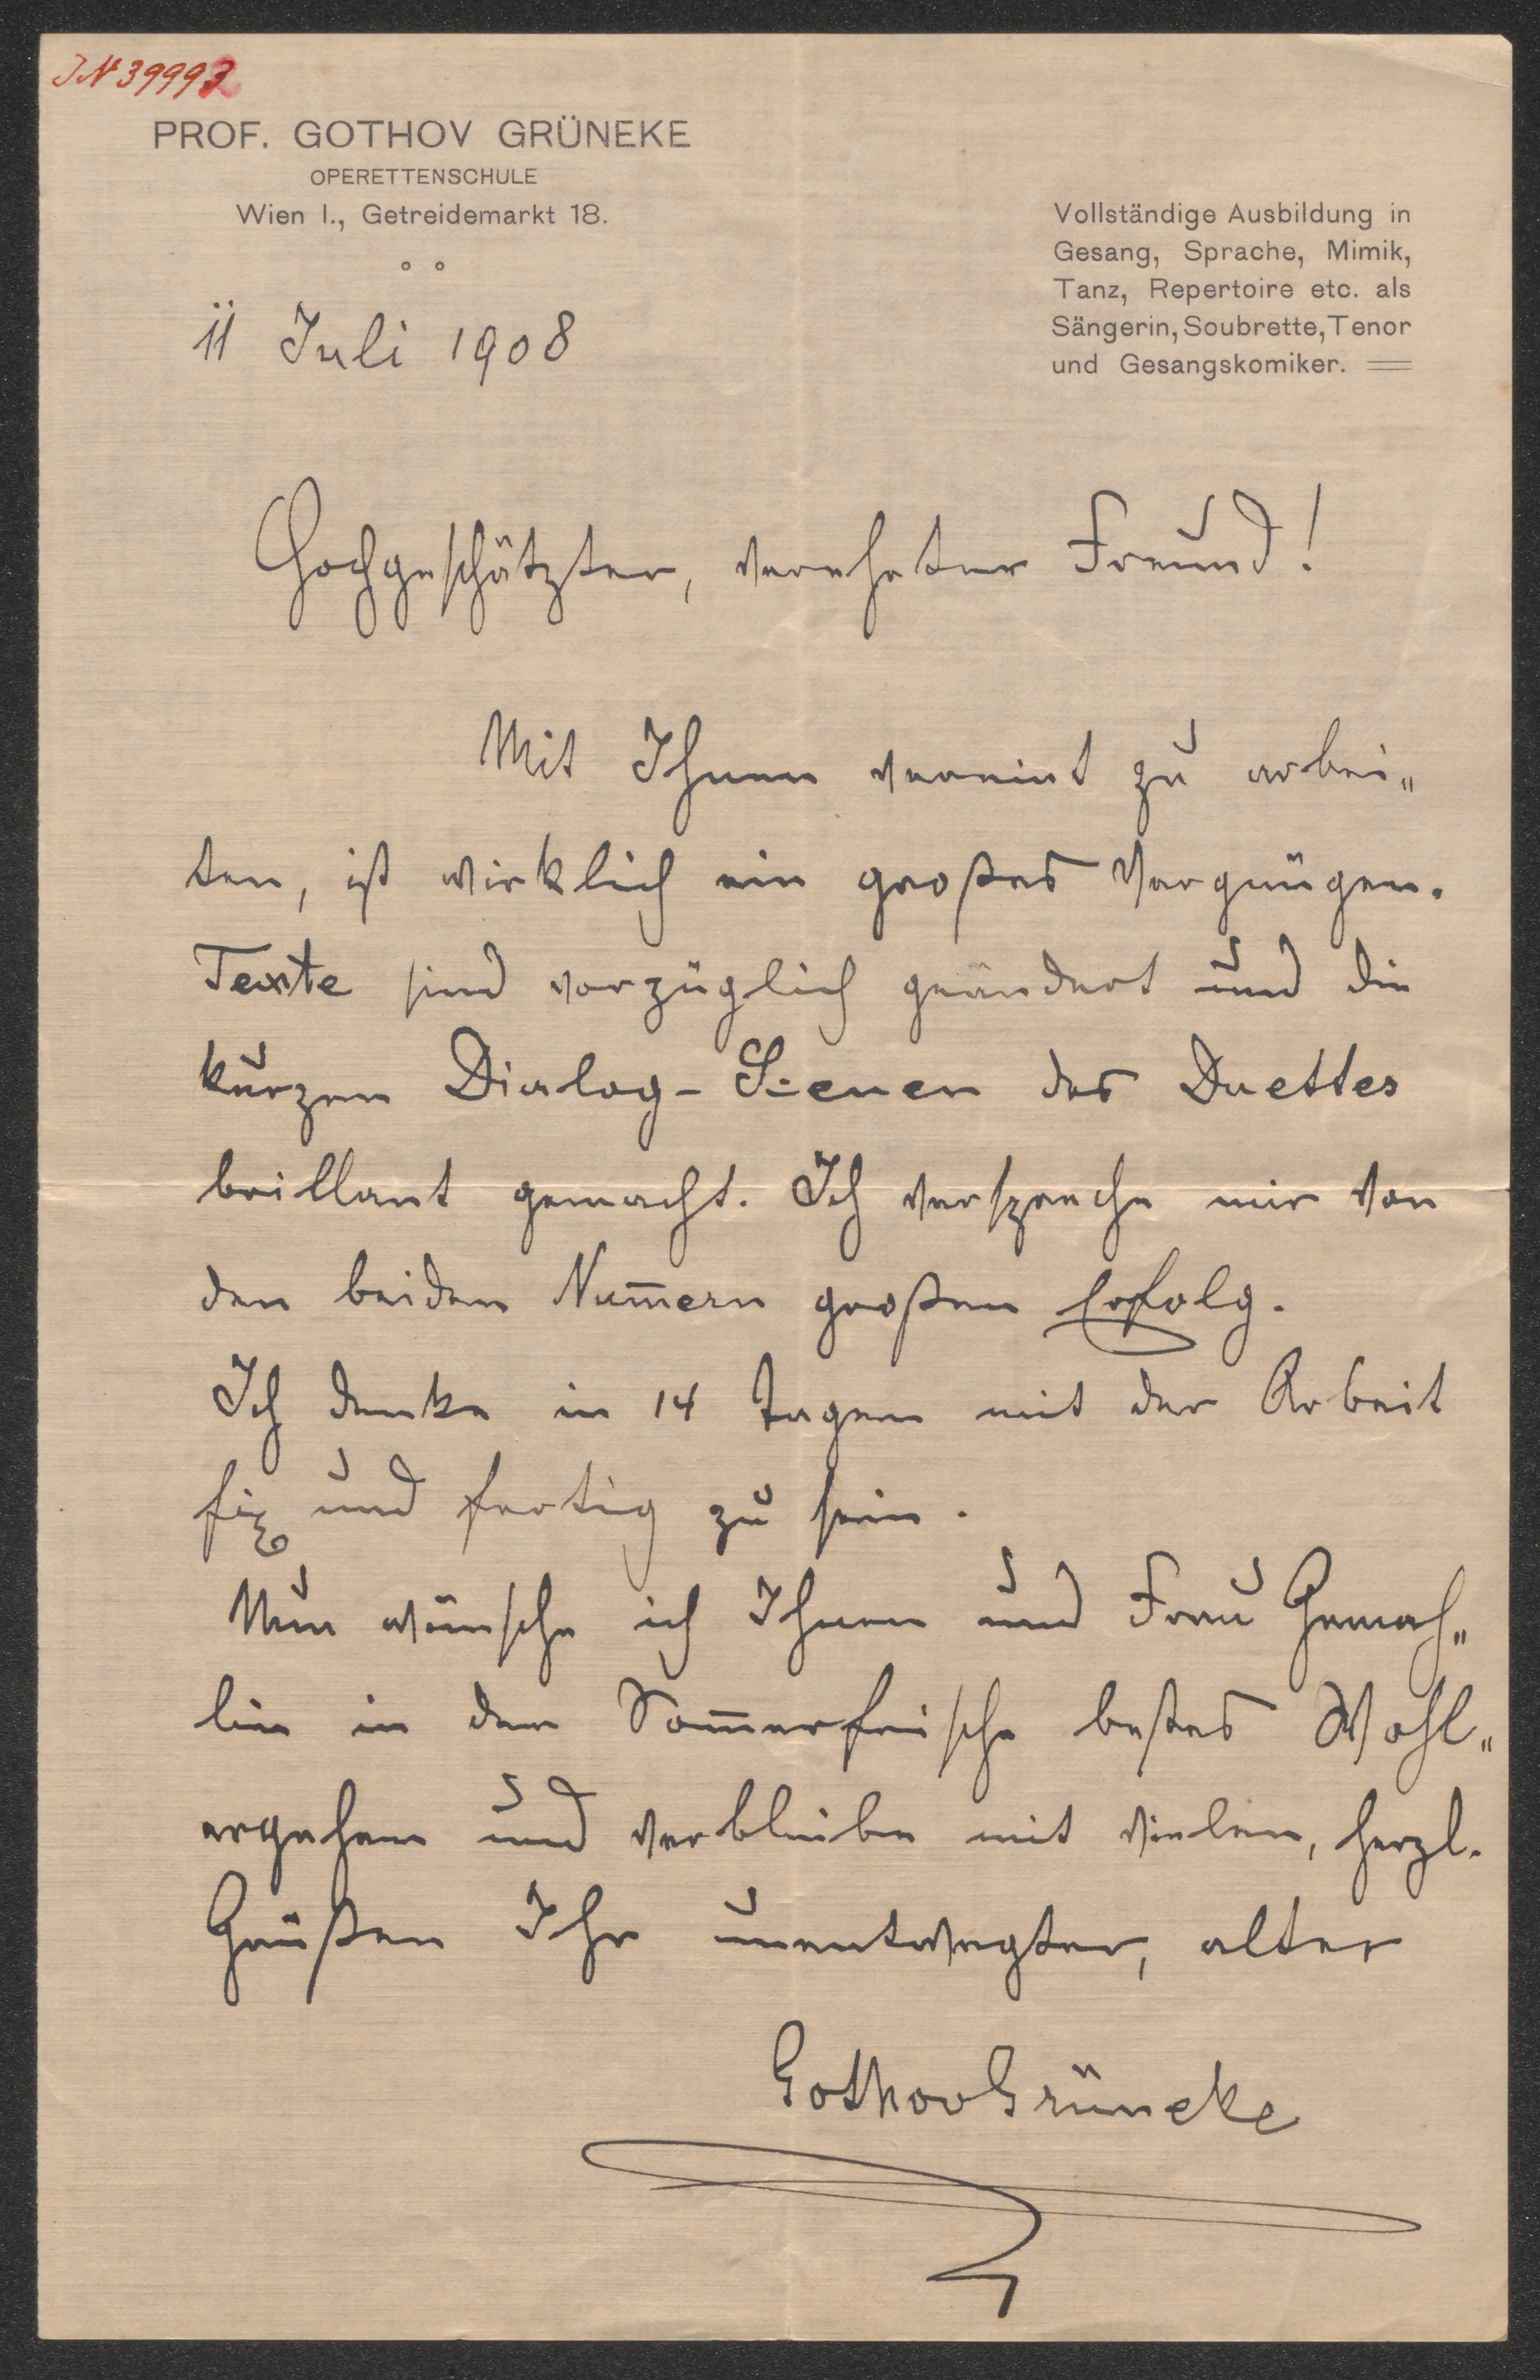 JN 39992
PROF. GOTHOV GRÜNEKE
OPERETTENSCHULE
Wien I., Getreidemarkt 18.
Vollständige Ausbildung in
Gesang, Sprache, Mimik,
Tanz, Repertoire etc. als
Sängerin, Soubrette, Tenor
und Gesangskomiker.
11 Juli 1908
Hochgeschätzter, verehrter Freund!
Mit Ihnen vereint zu arbei„
ten, ist wirklich ein großes Vergnügen.
Texte sind vorzüglich geändert und die
kurzen Dialog-Scenen des Duettes
brillant gemacht. Ich verspreche mir von
den beiden Num̄ern großen Erfolg.
Ich denke in 14 Tagen mit der Arbeit
fix und fertig zu sein.
Nun wünsche ich Ihnen und Frau Gemah„
lin in der Som̄erfrische bestes Wohl„
ergehen und verbleibe mit vielen, herzl.
Grüßen Ihr unentwegter, alter
GothovGrüneke